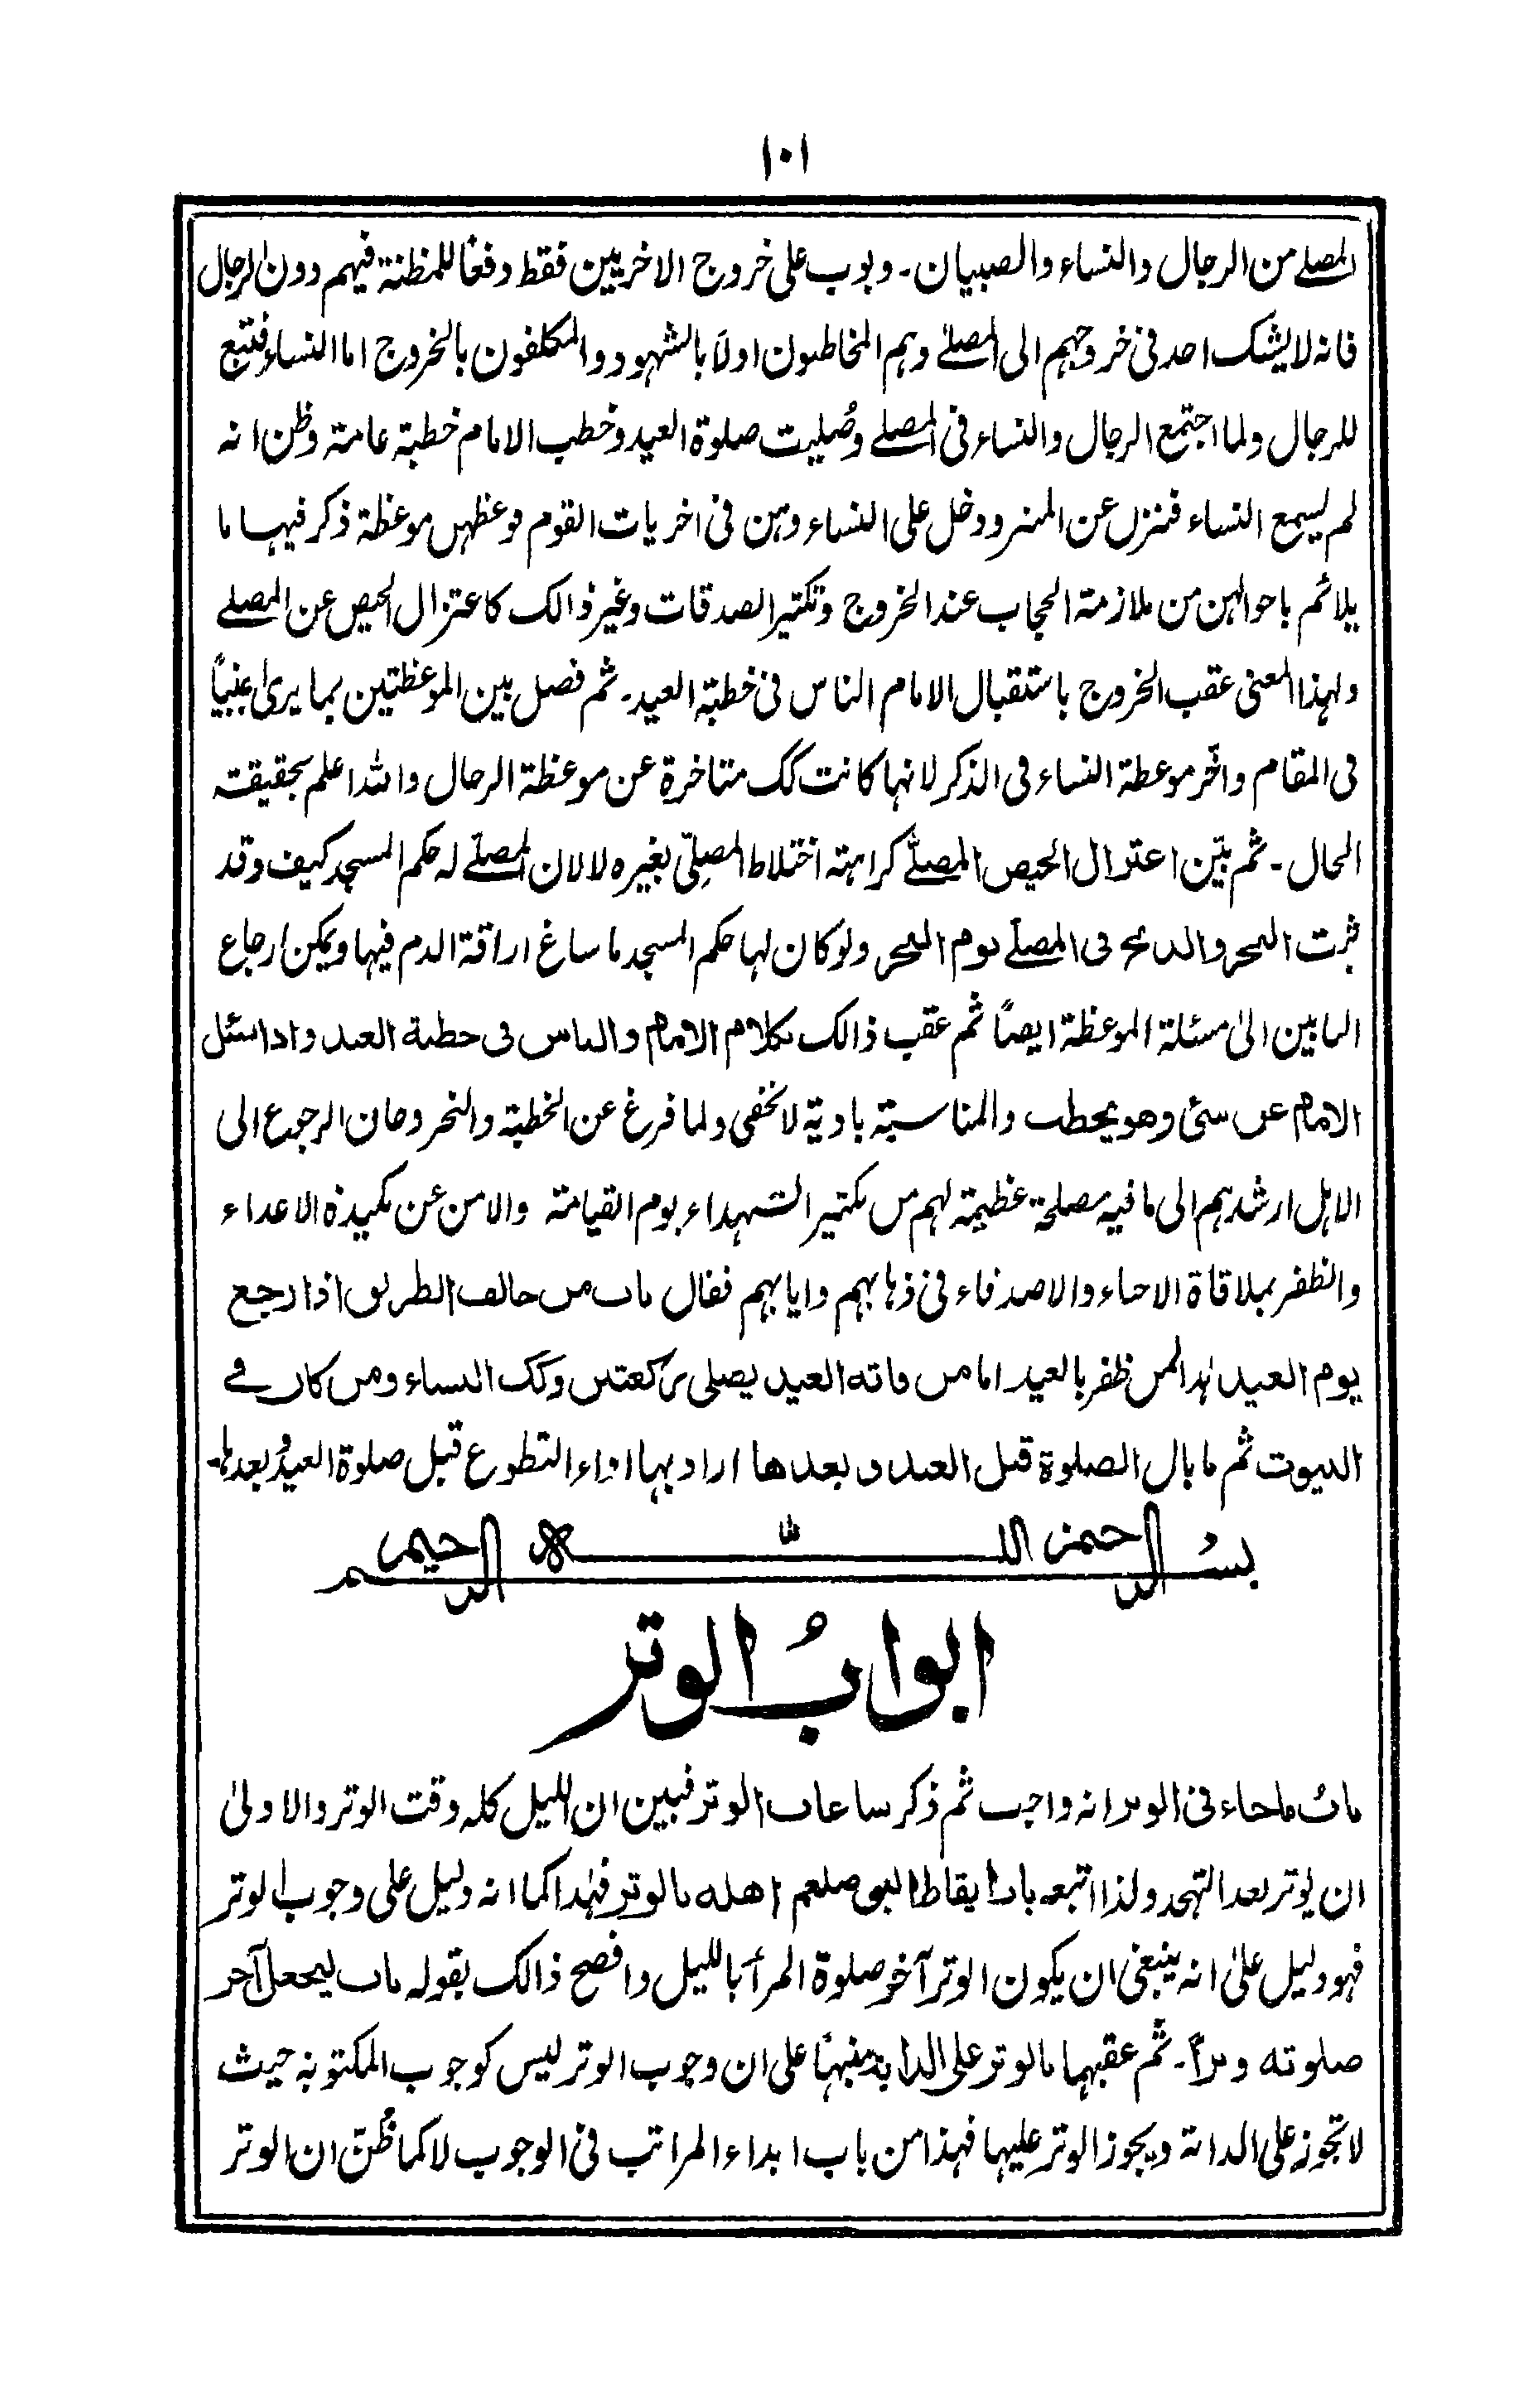 ١٠١
المصلے من الرجال والنساء والصبيان۔ وبوب على خروج الاخريين فقط دفعًا للمظنة فيهم دون الرجال
فانه لا يشك احد فى خروجهم الى المصلےٰ وهم المخاطبون اولاً بالشهود والمكلفون بالخروج اما النساء فتتبع
للرجال ولما اجتمع الرجال والنساء فى المصلے وصُليت صلوة العيد وخطب الامام خطبة عامة وظن انه
لم يسمع النساء فنزل عن المنبر ودخل على النساء وهن فى اخريات القوم فوعظهن موعظة ذكر فيها ما
يلائم باحوالهن من ملازمة الحجاب عند الخروج وتكثير الصدقات وغير ذالك كاعتزال الحيض عن المصلے
ولهذا المعنى عقب الخروج باستقبال الامام الناس فى خطبة العيد۔ ثم فصل بين الموعظتين بما يرىٰ اجنبيًا
فى المقام واخّر موعظة النساء فى الذكر لانها كانت كك متاخرة عن موعظة الرجال والله اعلم بحقيقة
الحال۔ ثم بيّن اعتزال الحيض المصلےّ كراهة اختلاط المصلِّى بغيره لا لان المصلےّ له حكم المسجد كيف وقد
ثبت النحر والذبح فى المصلےّ يوم النحر ولو كان لها حكم المسجد ما ساغ اراقة الدم فيها ويمكن ارجاع
البابين الىٰ مسئلة الموعظة ايضًا ثم عقب ذالك بكلام الامام والناس فى خطبة العيد واذا سئل
الامام عن شئ وهو يخطب والمناسبة بادية لا تخفى ولما فرغ عن الخطبة والنحر وحان الرجوع الى
الاهل ارشدهم الى ما فيه مصلحة عظيمة لهم من تكثير الشهداء يوم القيامة والامن عن مكيدة الاعداء
والظفر بملاقاة الاحباء والاصدقاء فى ذهابهم وايابهم فقال باب من خالف الطريق اذا رجع
يوم العيد هذا لمن ظفر بالعيد اما من فاته العيد يصلى ركعتين وكك النساء ومن كان فے
البيوت ثم ما بال الصلوة قبل العيد وبعدها اراد بها اداء التطوع قبل صلوة العيد وبعدها۔
بســم اللـــه الرحمن الرحيـم
ابوابُ الوتر
بابُ ماجاء فى الوتر انه واجب ثم ذكر ساعات الوتر فبين ان الليل كله وقت الوتر والاولىٰ
ان يوتر بعد التهجد ولذا اتبعه باب ايقاظ النبى صلعم اهله بالوتر فهٰذا كما انه دليل على وجوب الوتر
فهو دليل علىٰ انه ينبغى ان يكون الوتر آخر صلوة المرأ بالليل وافصح ذالك بقوله باب ليجعل آخر
صلوته وترًا۔ ثم عقبها بالوتر على الدابة منبهًا على ان وجوب الوتر ليس كوجوب المكتوبة حيث
لا تجوز على الدابة ويجوز الوتر عليها فهذا من باب ابداء المراتب فى الوجوب لا كما ظُنّ ان الوتر